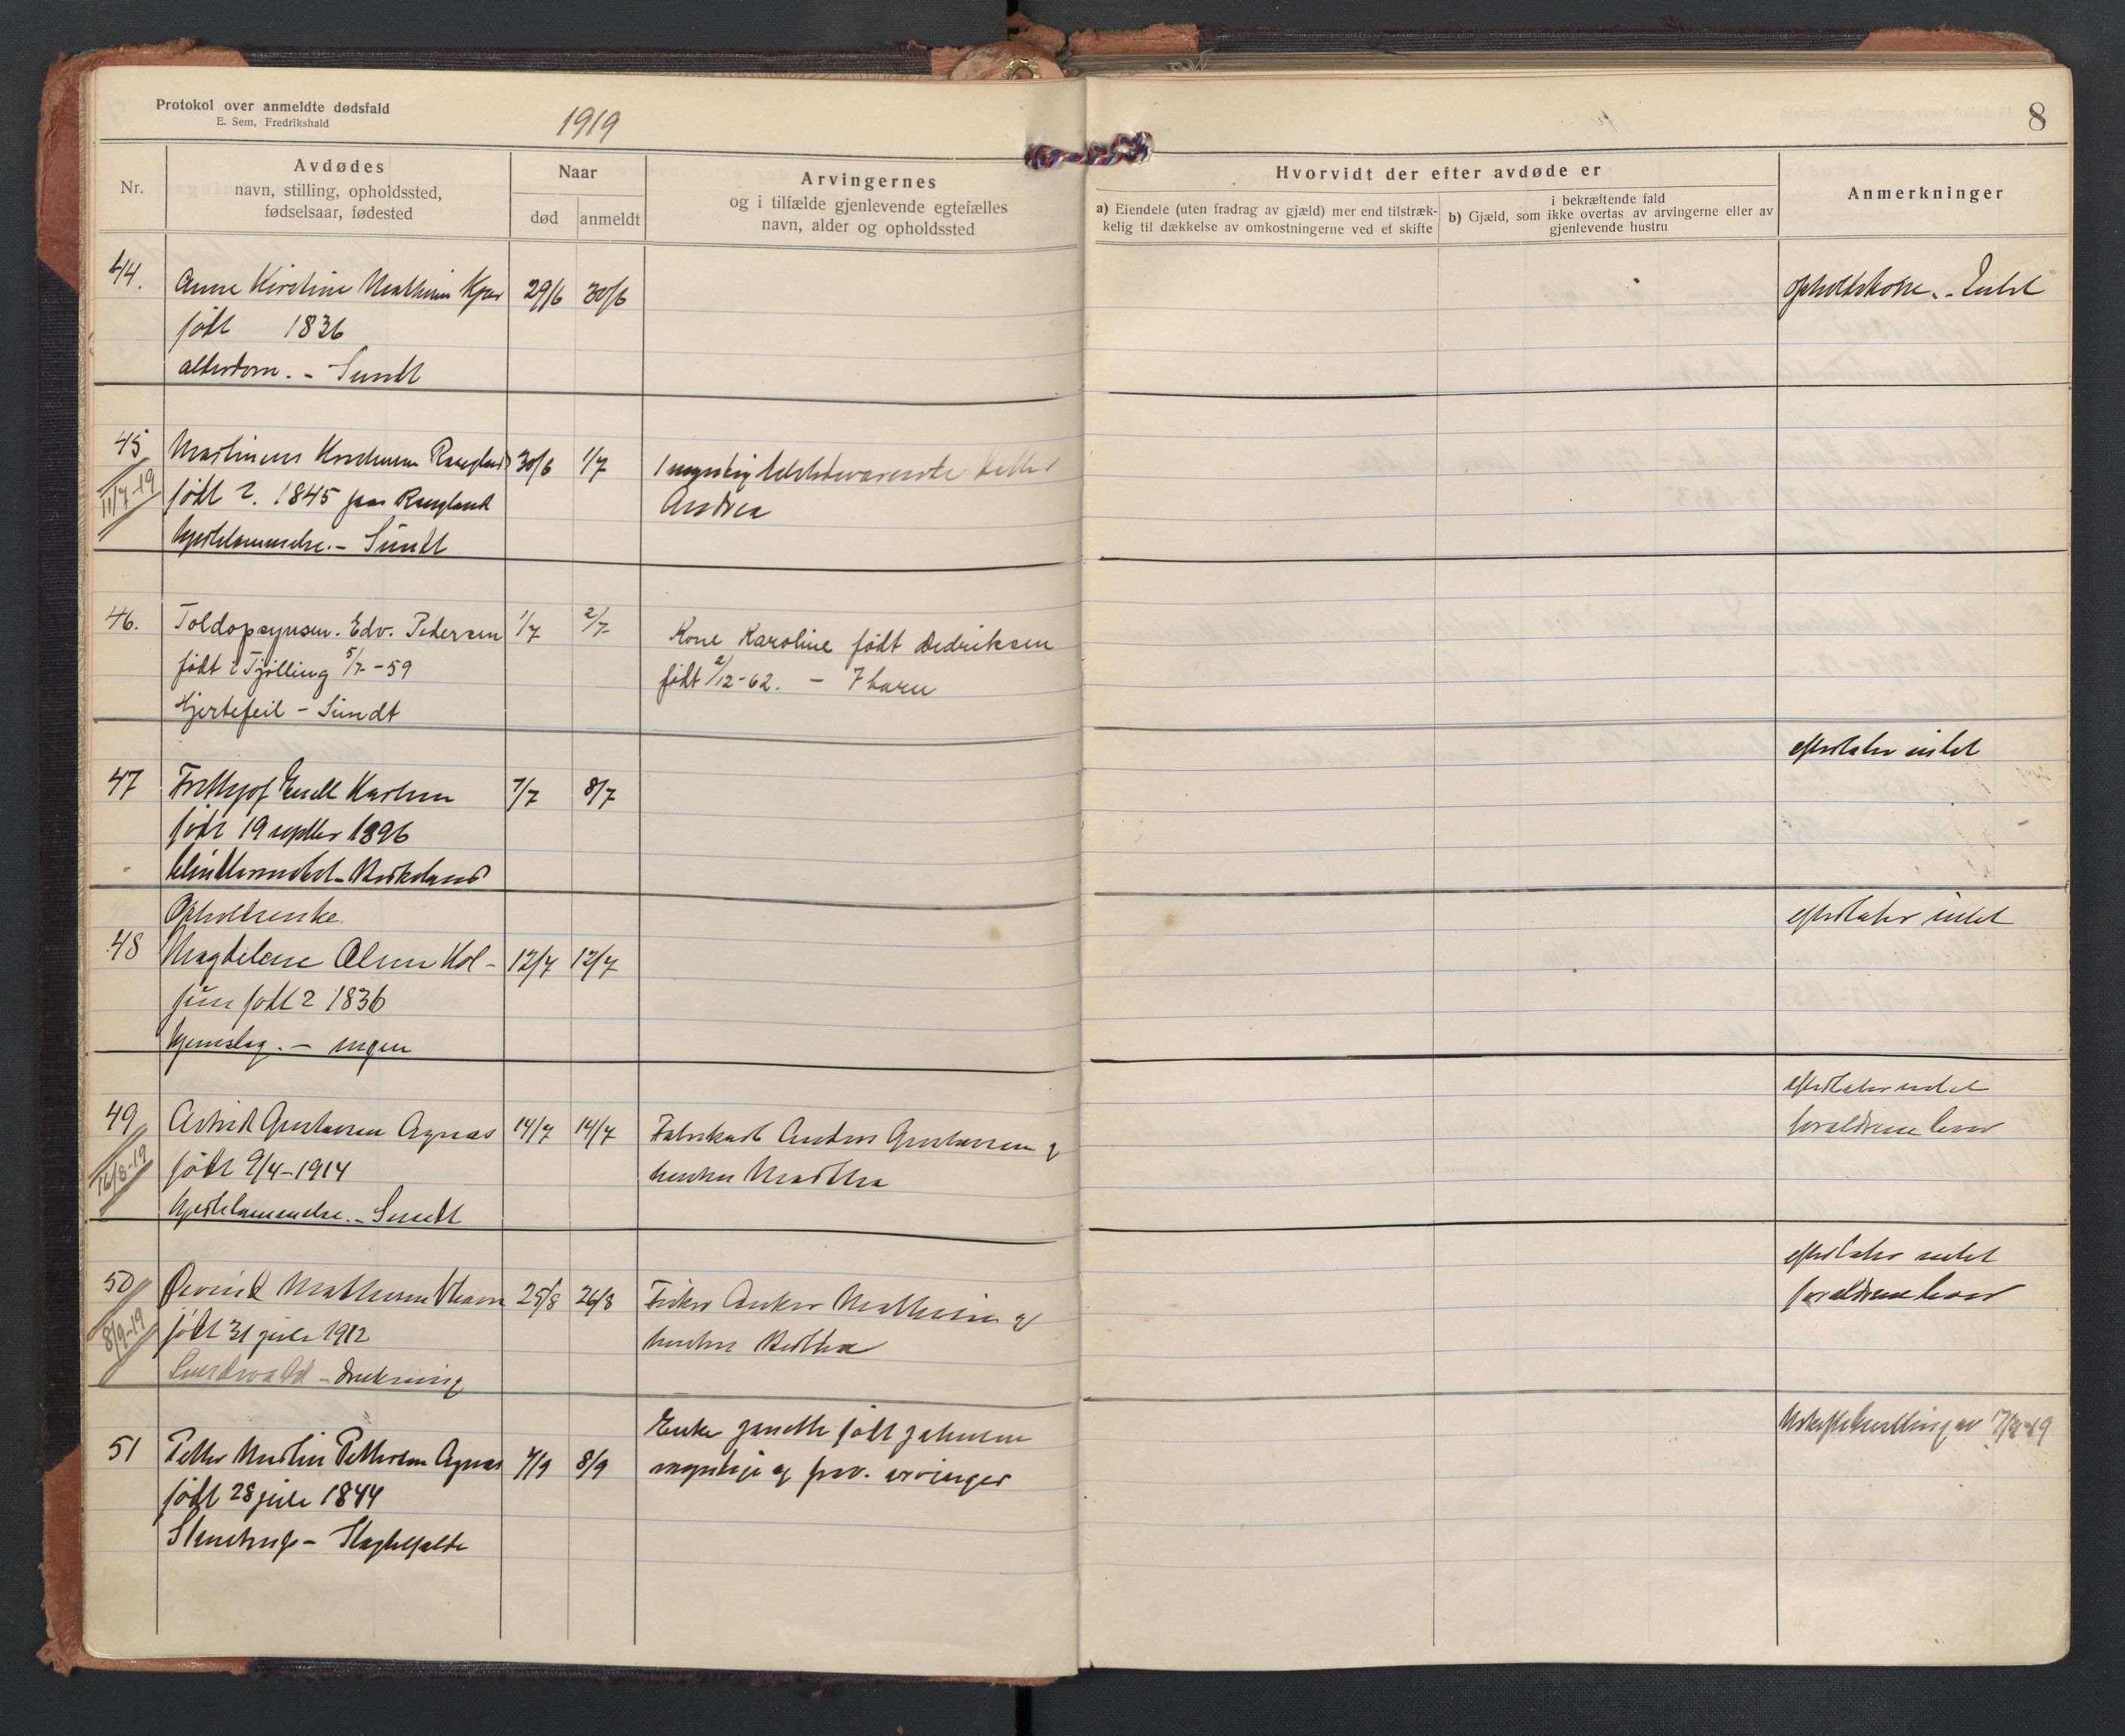 Protokol over anmeldte dødsfald
E. Sem, Fredrikshald
1919
8
Nr.
Avdødes
navn, stilling, opholdssted,
fødselsaar, fødested
Naar
død
anmeldt
Arvingernes
og i tilfælde gjenlevende egtefælles
navn, alder og opholdssted
Hvorvidt der efter avdøde er
a) Eiendele (uten fradrag av gjæld) mer end tilstræk-
kelig til dækkelse av omkostningerne ved et skifte
i bekræftende fald
b) Gjæld, som ikke overtas av arvingerne eller av
gjenlevende hustru
Anmerkninger
44.
Anne Kirstine Mathisen 29/6 30/6
Opholdskone. - Intet
født 1836
alderdom. - Sundt
45
30/6 1/7
1 myndig tilstedeværende datter
11/7-19
født ?. 1845 paa
Andrea
Hjertelammelse. - Sundt
46.
Toldopsynsm. Edv. Pedersen 1/7 2/7
Kone Karoline født Dedriksen
født i Tjølling 5/7-59
født 2/12-62. - 7 barn
Hjertefeil - Sundt
47
Frithjof Emil Karlsen 7/7 8/7
efterlater intet
født 19 septbr 1896
Opholdsenke
48
Magdelene Olsen Kol- 12/7 12/7
efterlater intet
født ? 1836
Hjerneslag. - ingen
49
Astrid Gustavsen Agnas 14/7 14/7
Fabrikarb. Anders Gustavsen og
efterlater intet
forældrene lever
16/8-19
født 9/4-1914
hustru Martha
Hjertelammelse. - Sundt
50
Øivind Mathisen 25/8 26/8
Fisker Anker Mathisen og
efterlater intet
forældrene lever
8/9-19
født 31 juli 1912
hustru Bertha
drukning
51
Petter Martin Pettersen Agnas 7/9 8/9
Enke født Johnsen
myndige og frav. arvinger
født 28 juli 1844